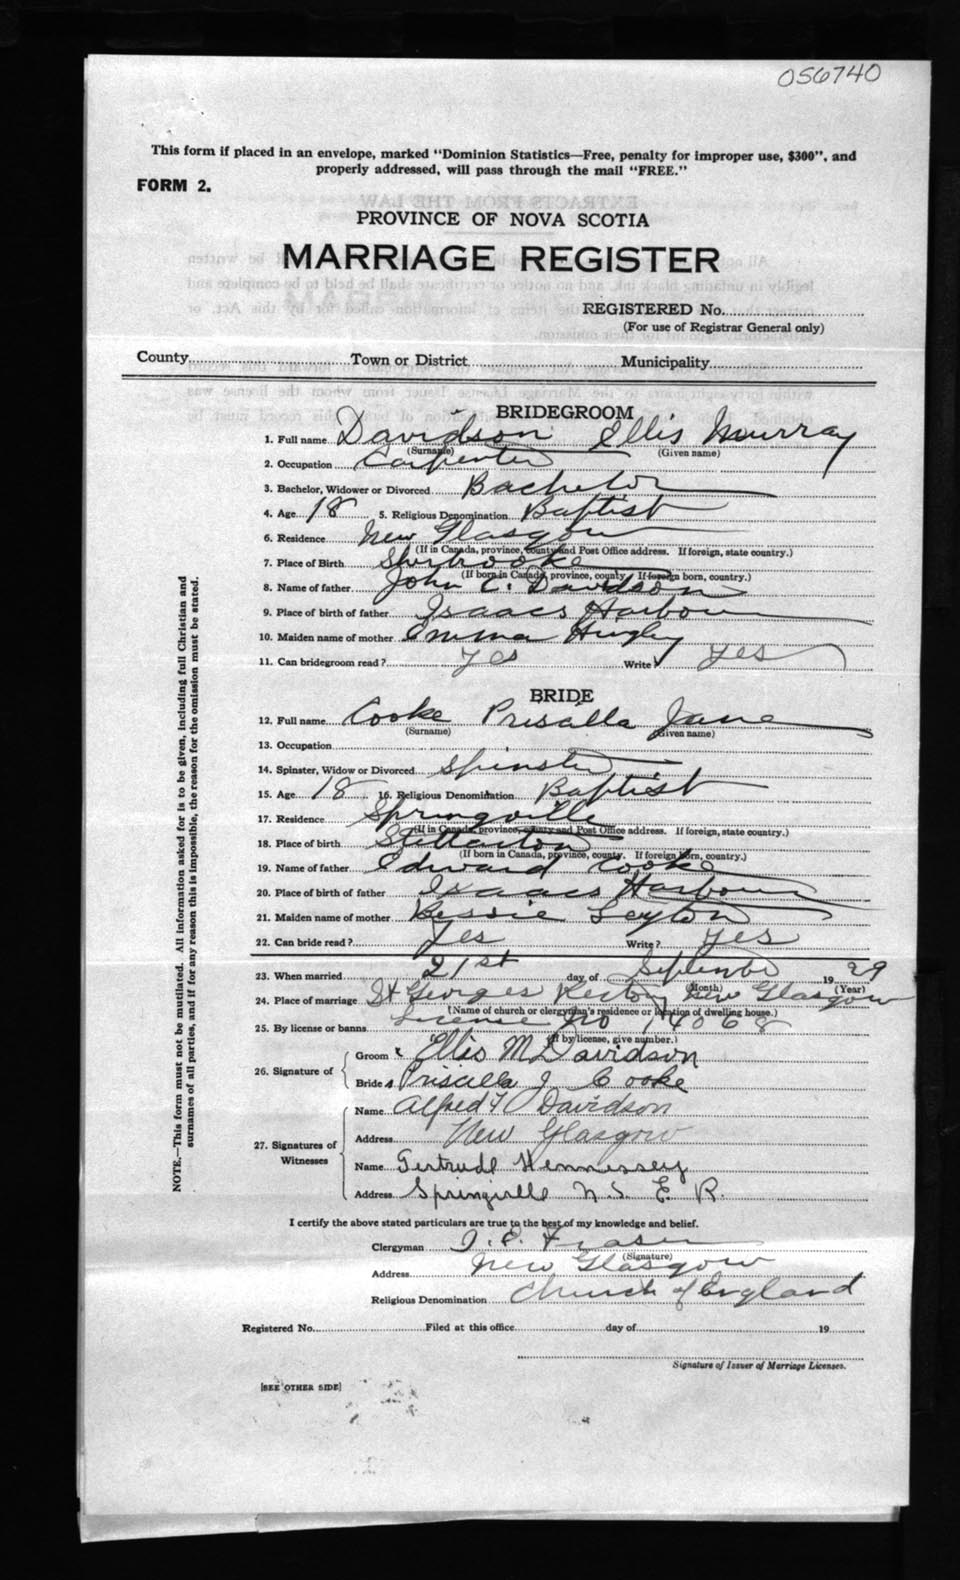 056740
This form if placed in an envelope, marked "Dominion Statistics—Free, penalty for improper use, $300", and
properly addressed, will pass through the mail "FREE."
FORM 2.
PROVINCE OF NOVA SCOTIA
MARRIAGE REGISTER
REGISTERED No.
(For use of Registrar General only)
County Town or District Municipality
BRIDEGROOM
1. Full name Davidson Ellis Murray
(Surname) (Given name)
2. Occupation Carpenter
3. Bachelor, Widower or Divorced Bachelor
4. Age 18 5. Religious Denomination Baptist
6. Residence New Glasgow
(If in Canada, province, county and Post Office address. If foreign, state country.)
7. Place of Birth Sherbrooke
(If born in Canada, province, county. If foreign born, country.)
8. Name of father John C. Davidson
9. Place of birth of father Isaacs Harbour
10. Maiden name of mother Emma Hugley
11. Can bridegroom read? yes Write? yes
BRIDE
12. Full name Cooke Priscilla Jane
(Surname) (Given name)
13. Occupation
14. Spinster, Widow or Divorced Spinster
15. Age 18 16. Religious Denomination Baptist
17. Residence Springville
(If in Canada, province, county and Post Office address. If foreign, state country.)
18. Place of birth Stellarton
(If born in Canada, province, county. If foreign born, country.)
19. Name of father Edward Cooke
20. Place of birth of father Isaacs Harbour
21. Maiden name of mother Bessie Leyton
22. Can bride read? Yes Write? yes
23. When married 21st day of September 19 29
(Month) (Year)
24. Place of marriage St Georges Rectory New Glasgow
(Name of church or clergyman's residence or location of dwelling house.)
25. By license or banns License No 14068
(If by license, give number.)
26. Signature of Groom Ellis M Davidson
Bride Priscilla J Cooke
27. Signatures of Witnesses Name Alfred F Davidson
Address New Glasgow
Name Gertrude Hennessey
Address Springville N.S. E. R.
I certify the above stated particulars are true to the best of my knowledge and belief.
Clergyman Fraser
(Signature)
Address New Glasgow
Religious Denomination Church of England
Registered No. Filed at this office day of 19
Signature of Issuer of Marriage Licenses.
[SEE OTHER SIDE]
NOTE.—This form must not be mutilated. All information asked for is to be given, including full Christian and
surnames of all parties, and if for any reason this is impossible, the reason for the omission must be stated.